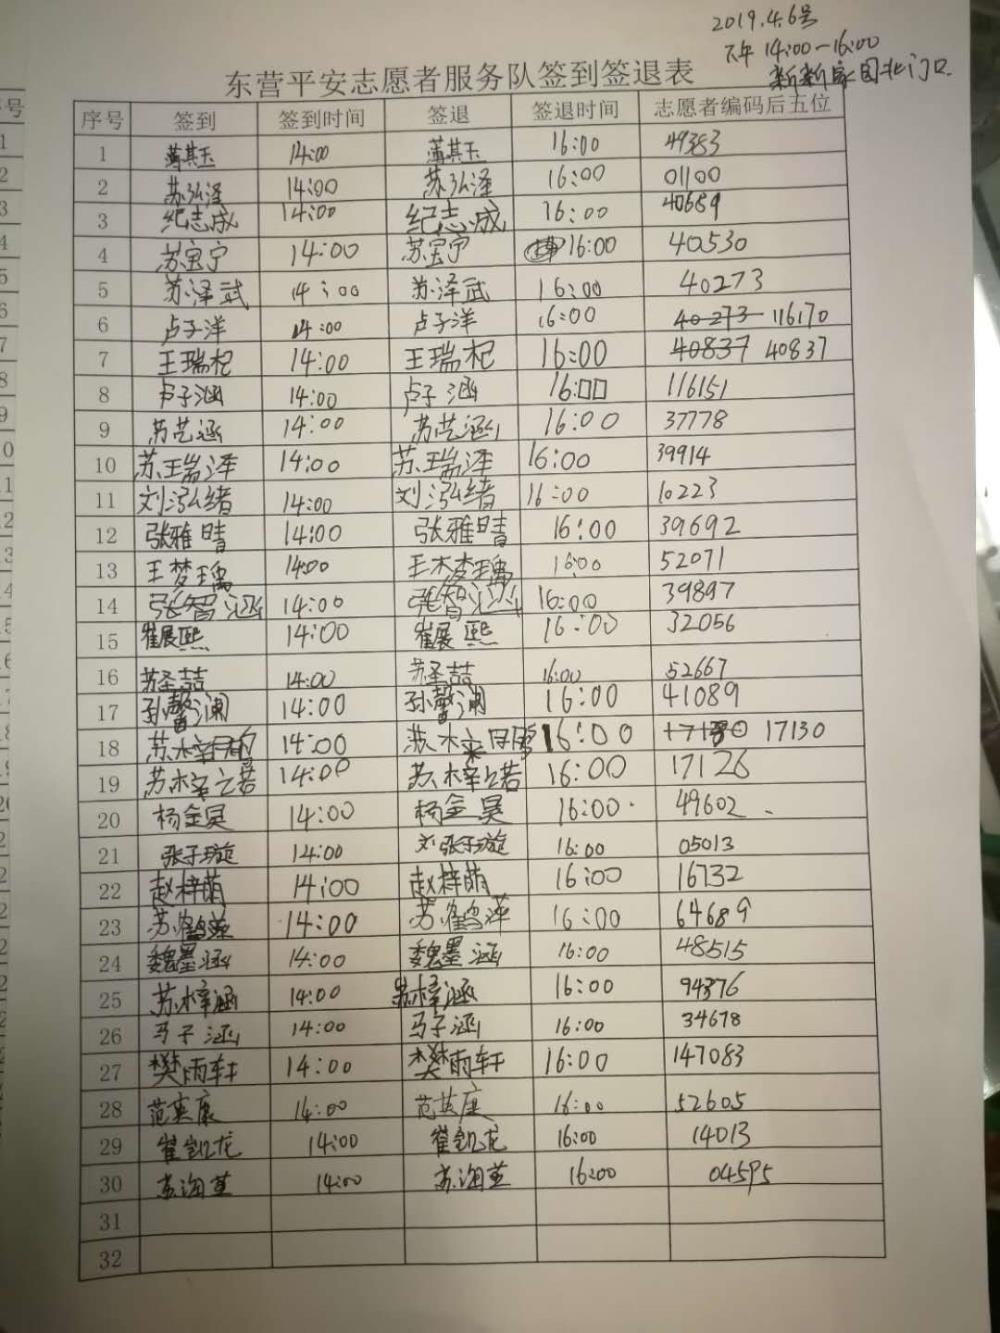 2019.4.6号
下午 14:00-16:00
新新家园北门口
东营平安志愿者服务队签到签退表
序号 签到 签到时间 签退 签退时间 志愿者编码后五位
1 薄其玉 14:00 薄其玉 16:00 49383
2 苏弘泽 14:00 苏弘泽 16:00 01100
3 纪志成 14:00 纪志成 16:00 40689
4 苏宝宁 14:00 苏宝宁 16:00 40530
5 苏泽武 14:00 苏泽武 16:00 40273
6 卢子洋 14:00 卢子洋 16:00 40273 116170
7 王瑞杞 14:00 王瑞杞 16:00 40837 40837
8 卢子涵 14:00 卢子涵 16:00 116151
9 苏艺涵 14:00 苏艺涵 16:00 37778
10 苏瑞泽 14:00 苏瑞泽 16:00 39914
11 刘泓绪 14:00 刘泓绪 16:00 10223
12 张雅晴 14:00 张雅晴 16:00 39692
13 王梦瑀 14:00 王梦瑀 16:00 52071
14 张智涵 14:00 张智涵 16:00 39897
15 崔展熙 14:00 崔展熙 16:00 32056
16 苏圣喆 14:00 苏圣喆 16:00 52667
17 孙馨澜 14:00 孙馨澜 16:00 41089
18 14:00 16:00 17130 17130
19 苏梓之若 14:00 苏梓之若 16:00 17126
20 杨金昊 14:00 杨金昊 16:00 49602
21 张子璇 14:00 张子璇 16:00 05013
22 赵梓萌 14:00 赵梓萌 16:00 16732
23 苏鹤萍 14:00 苏鹤萍 16:00 64689
24 魏墨涵 14:00 魏墨涵 16:00 48515
25 苏梓涵 14:00 苏梓涵 16:00 94376
26 马子涵 14:00 马子涵 16:00 34678
27 樊雨轩 14:00 樊雨轩 16:00 147083
28 范英康 14:00 范英康 16:00 52605
29 崔凯龙 14:00 崔凯龙 16:00 14013
30 苏海堇 14:00 苏海堇 16:00 04595
31
32